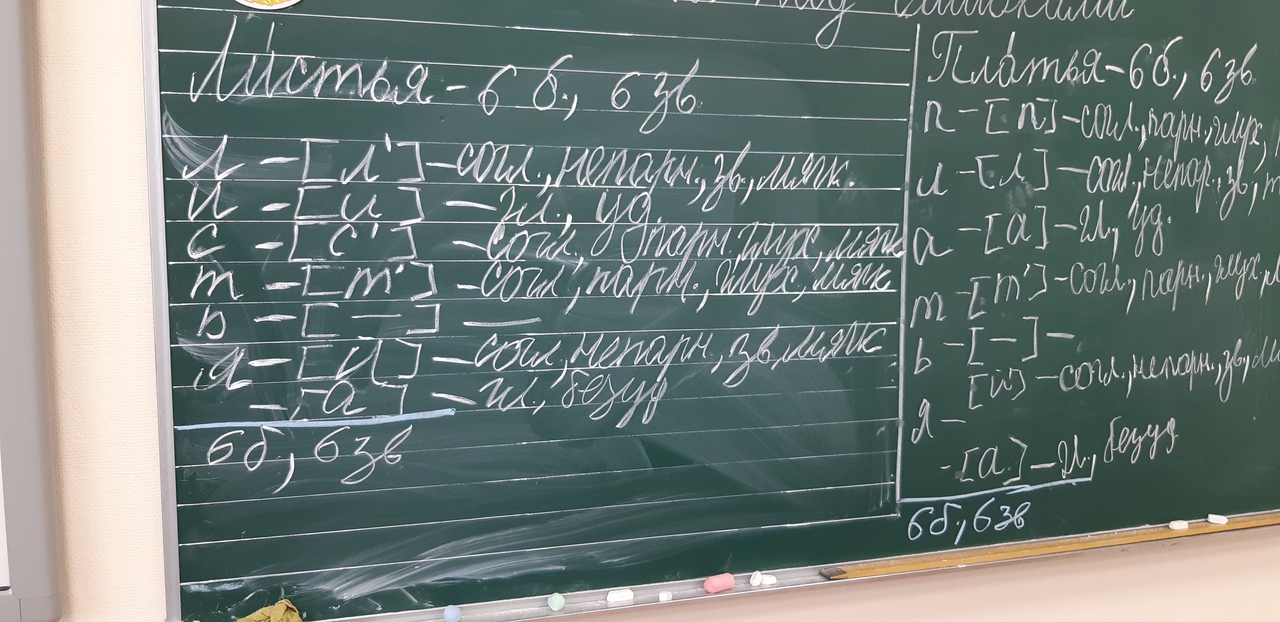 под
Ли́стья - 6 б., 6 зв.
л - [л'] - согл., непарн., зв., мягк.
и - [и] - гл., уд.
с - [с'] - согл., парн., глух, мягк
т - [т'] - согл., парн., глух, мягк
ь - [-] -
я - [й] - согл, непарн., зв, мягк
- [а] - гл., безуд
6б, 6зв
Пла́тья - 6б., 6зв
п - [п] - согл., парн., глух,
л - [л] - согл., непар., зв,
а - [а] - гл., уд.
т - [т'] - согл., парн., глух
ь - [-] -
я - [й] - согл., непарн., зв,
- [а] - гл., безуд
6б, 6зв